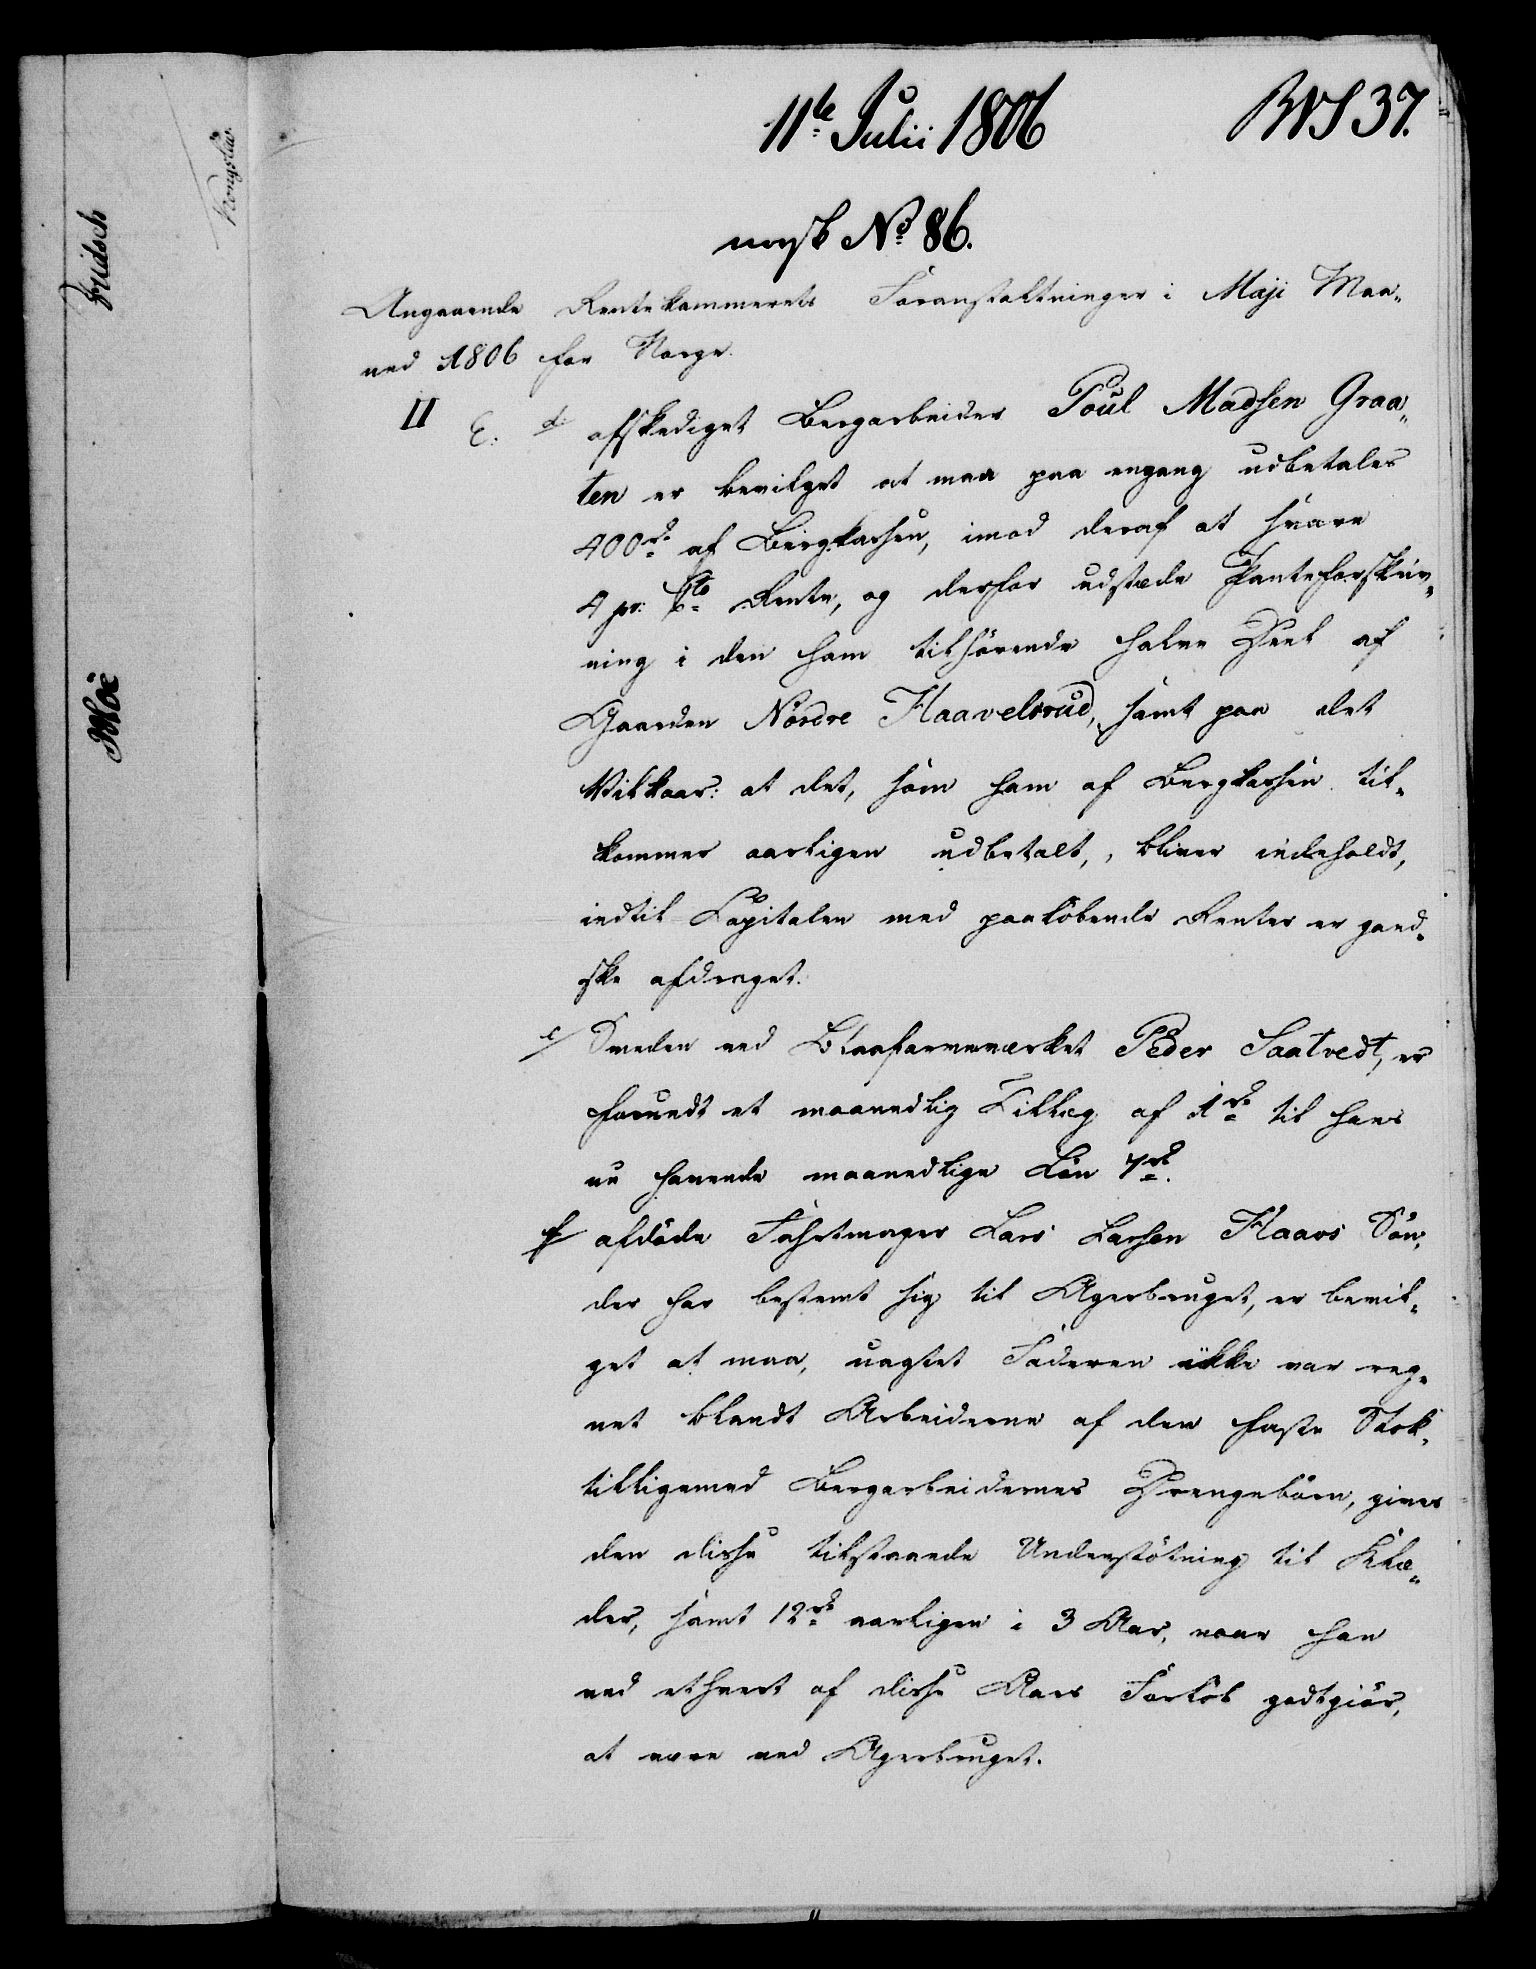 11te Julii 1806
37.
norsk No 86.
Angaaende Rentekammerets Foranstaltninger i Maji Maa-
ned 1806 for Norge.
II E. d/ afskediget Bergarbeider Poul Madsen Graa-
ten er bevilget at maa paa engang udbetales
400 rd af Bergkassen, imod deraf at svare
4 pr: Cto Rente, og derfor udstede Panteforskriv-
ning i den ham tilhørende halve Deel af
Gaarden Nordre Haavelsrud, samt paa det
Vilkaar: at det, som ham af Bergkassen til-
kommer aarligen udbetalt, bliver indeholdt,
indtil Capitalen med paaløbende Renter er gand-
ske afdraget.
e/ Smeden ved Blaafarveværket Peder Saatvedt, er
forundt et maanedlig Tillæg af 1 rd til hans
nu havende maanedlige Løn 7 rd.
f/ afdøde Fahrtmager Lars Larsen Haavs Søn,
der har bestemt sig til Agerbruget, er bevil-
get at maa, uagtet Faderen ikke var reg-
net blandt Arbeiderne af den faste Stok,
tilligemed Bergarbeidernes Drengebørn, gives
den disse tilstaaede Understøtning til Klæ-
der, samt 12 rd aarligen i 3 Aar, naar han
ved ethvert af disse Aars Forløb godtgiør,
at være ved Agerbruget.
Fridsch
Kongslew
Moe